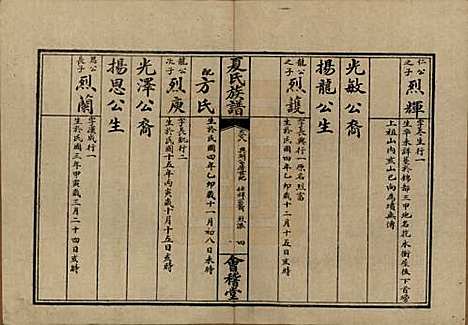 仁公之子烈輝
字冬生行一
生卒未詳葬於錦部三甲地名花水衝屋後下首塝
上祖山內亥山巳向為墳無傳
光敏公裔
揚龍公生
龍公之子烈護
字長興行一原名烈富
生於民國四年乙卯歲十二月十五日亥時
夏氏族譜
會稽堂
配方氏
生於民國四年乙卯歲十一月初八日未時
龍公次子烈庚
字長凱行二
生於民國十五年丙寅歲十月十五日亥時
光澤公裔
揚思公生
思公長子烈蘭
字漢成行一
生於民國三年甲寅歲三月二十四日亥時